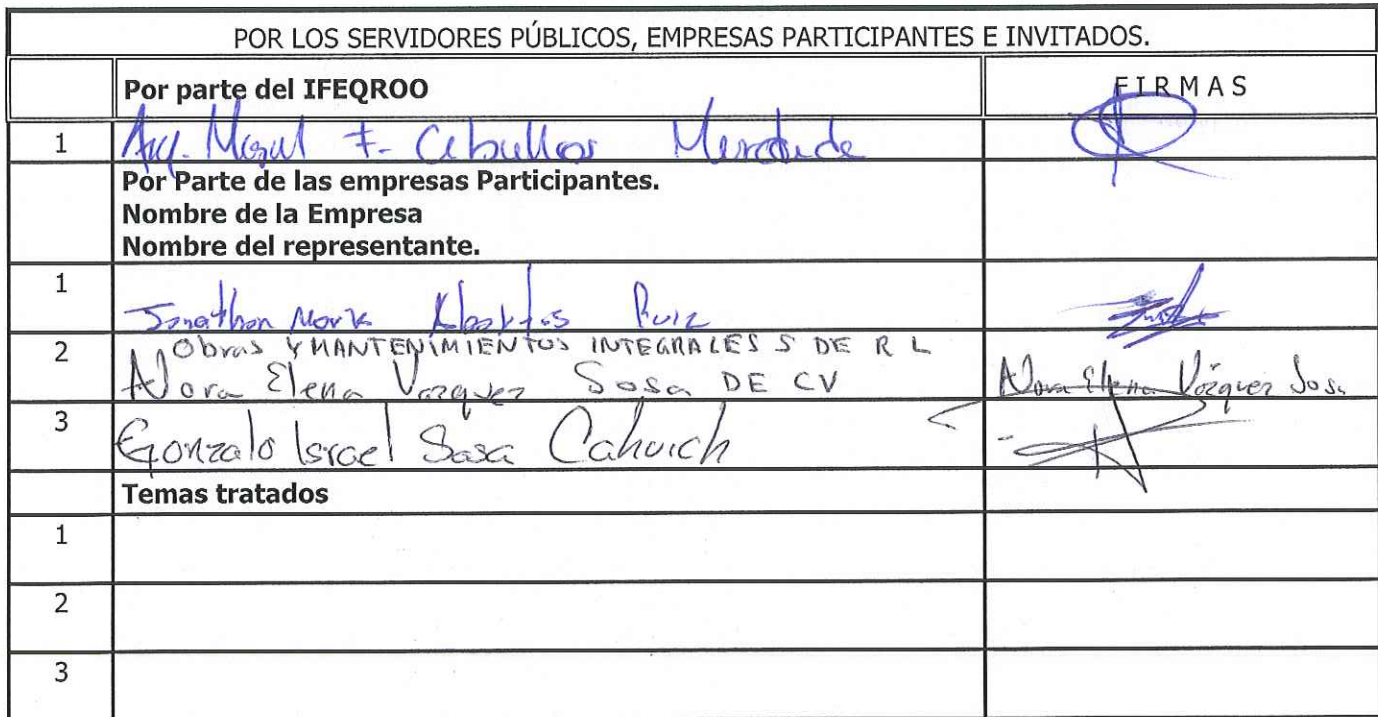 POR LOS SERVIDORES PÚBLICOS, EMPRESAS PARTICIPANTES E INVITADOS.
Por parte del IFEQROO FIRMAS
1 Arq. F.
Por Parte de las empresas Participantes.
Nombre de la Empresa
Nombre del representante.
1 Jonathan Mark Ruiz
2 Obras Y MANTENIMIENTOS INTEGRALES S DE R L
Nora Elena Vazquez Sosa DE CV Nora Elena Vázquez Sosa
3 Gonzalo Israel Sosa Cahuich
Temas tratados
1
2
3